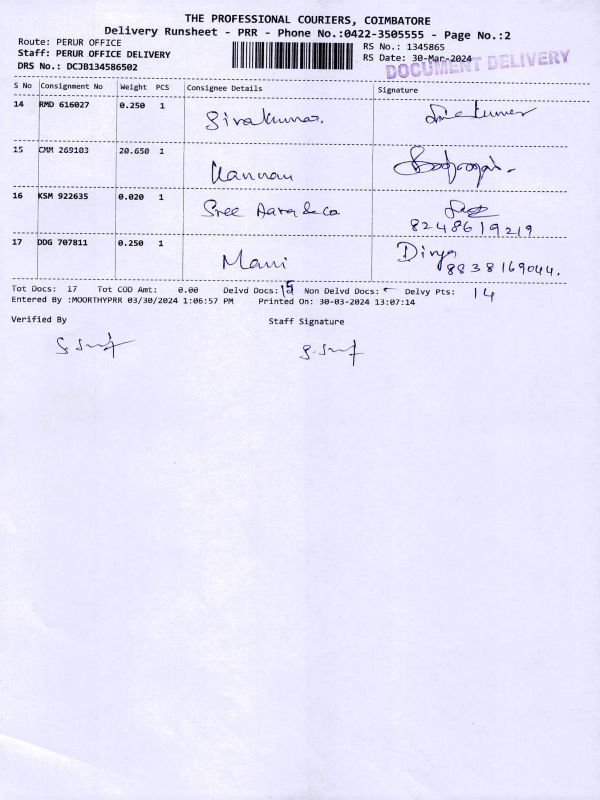 THE PROFESSIONAL COURIERS, COIMBATORE
Delivery Runsheet - PRR - Phone No.:0422-3505555 - Page No.:2
Route: PERUR OFFICE
Staff: PERUR OFFICE DELIVERY
DRS No.: DCJB134586502
RS No.: 1345865
RS Date: 30-Mar-2024
DOCUMENT DELIVERY
S No Consignment No Weight PCS Consignee Details Signature
14 RMD 616027 0.250 1 Sivakumar.
15 CMM 269103 20.650 1 Kannan
16 KSM 922635 0.020 1 Sree & Co
8248619219
17 DDG 707811 0.250 1 Mani Divya
8838169044.
Tot Docs: 17 Tot COD Amt: 0.00 Delvd Docs: 15 Non Delvd Docs: Delvy Pts: 14
Entered By :MOORTHYPRR 03/30/2024 1:06:57 PM Printed On: 30-03-2024 13:07:14
Verified By Staff Signature